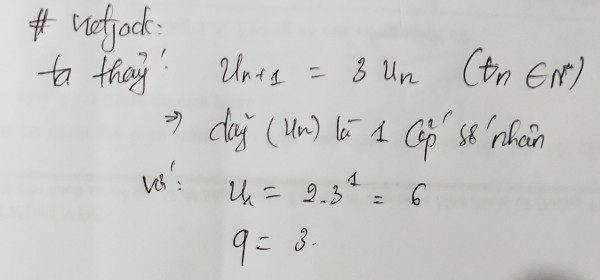 # Netjack:
ta thấy: Un+1 = 3 Un (∀n ∈ N*)
⇒ dãy (Un) là 1 Cấp số nhân
với: U1 = 2.3^1 = 6
q = 3.